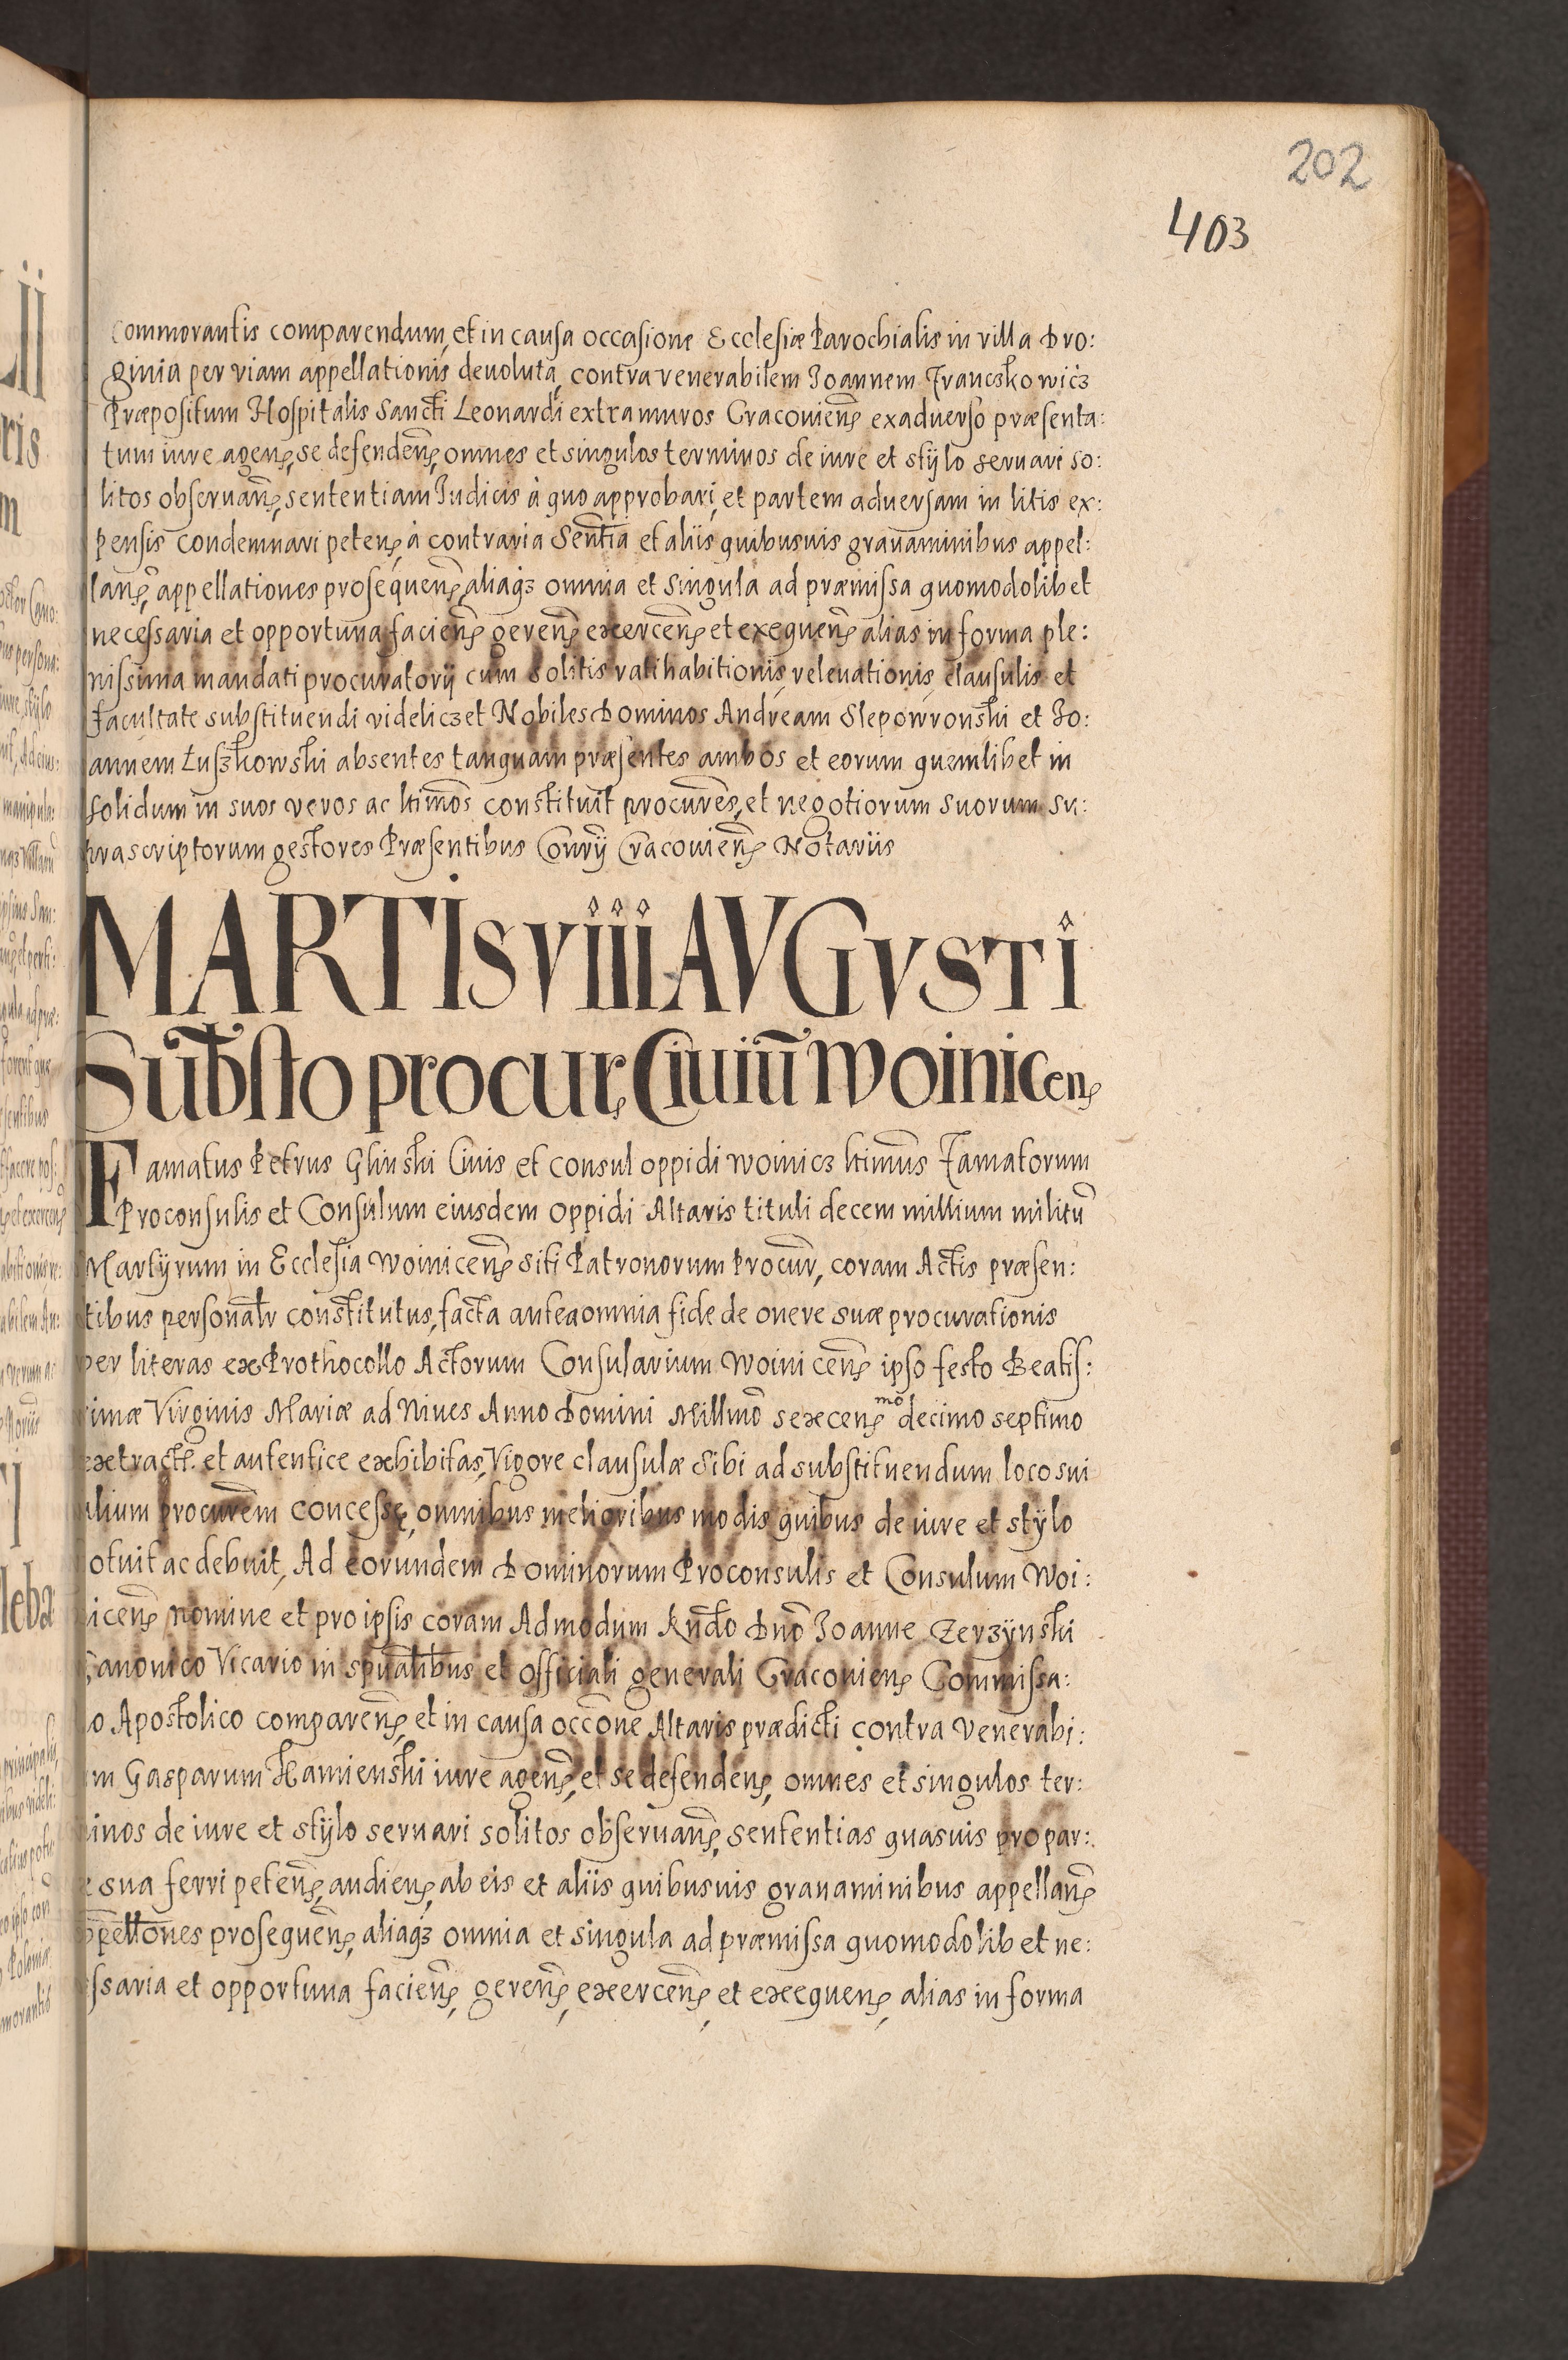 202
403
commorantis comparendum, et in causa occasione Ecclesiæ Parochialis in villa Dro:
ginia per viam appellationis deuoluta, contra venerabilem Joannem Franczkowicz
Præpositum Hospitalis Sancti Leonardi extra muros Cracouien̄ exaduerso præsenta:
tum iure agen̄, se defenden̄, omnes et singulos terminos de iure et stÿlo seruari so:
litos obseruan̄, sententiam Iudicis à quo approbari, et partem aduersam in litis ex:
pensis condemnari peten̄, à contraria Sentīa et aliis quibusuis grauaminibus appel:
lan̄, appellationes prosequen̄, aliaq3 omnia et singula ad præmissa quomodolibet
necessaria et opportuna facien̄ geren̄ exercen̄ et exequen̄ alias in forma ple:
nissima mandati procuratorÿ cum solitis ratihabitionis, releuationis, clausulis et
facultate substituendi videliczet Nobiles Dominos Andream Slepowronski et Jo:
annem Łuszkowski absentes tanquam præsentes ambos et eorum quemlibet in
solidum in suos veros ac ltimos constituit procurēs, et negotiorum suorum su:
prascriptorum gestores Præsentibus Conrÿ Cracouien̄ Notariis
MARTIS VIII AVGVSTI
Sub̄sto procur̄ Ciuiū Woinicen̄
Famatus Petrus Glinski Ciuis et consul oppidi woinicz ltimūs Famatorum
Proconsulis et Consulum eiusdem oppidi Altaris tituli decem millium militū
Martÿrum in Ecclesia woinicen̄ siti Patronorum Procur̄, coram Actis præsen:
tibus personalr̄ constitutus, facta anteaomnia fide de onere suæ procurationis
per literas ex Prothocollo Actorum Consularium woinicen̄ ipso festo Beatis:
simæ Virginis Mariæ ad Niues Anno Domini Millmō sexcen̄mo decimo septimo
extract̄. et autentice exhibitas, Vigore clausulæ sibi ad substituendum loco sui
alium procurēm concessę, omnibus melioribus modis quibus de iure et stÿlo
otuit ac debuit, Ad eorundem Dominorum Proconsulis et Consulum Woi:
nicen̄ nomine et pro ipsis coram Admodum Rn̄do Dnō Joanne Zerzÿnski
Canonico Vicario in spūalibus et officiali generali Cracouien̄ Commissa:
io Apostolico comparen̄, et in causa occōne Altaris prædicti contra Venerabi:
em Gasparum Kamienski iure agen̄, et se defenden̄, omnes et singulos ter:
minos de iure et stÿlo seruari solitos obseruan̄, sententias quasuis pro par:
te sua ferri peten̄, audien̄, ab eis et aliis quibusuis grauaminibus appellan̄
appellōnes prosequen̄, aliaq3 omnia et singula ad præmissa quomodolibet ne:
essaria et opportuna facien̄, geren̄, exercen̄ et exequen̄, alias in forma